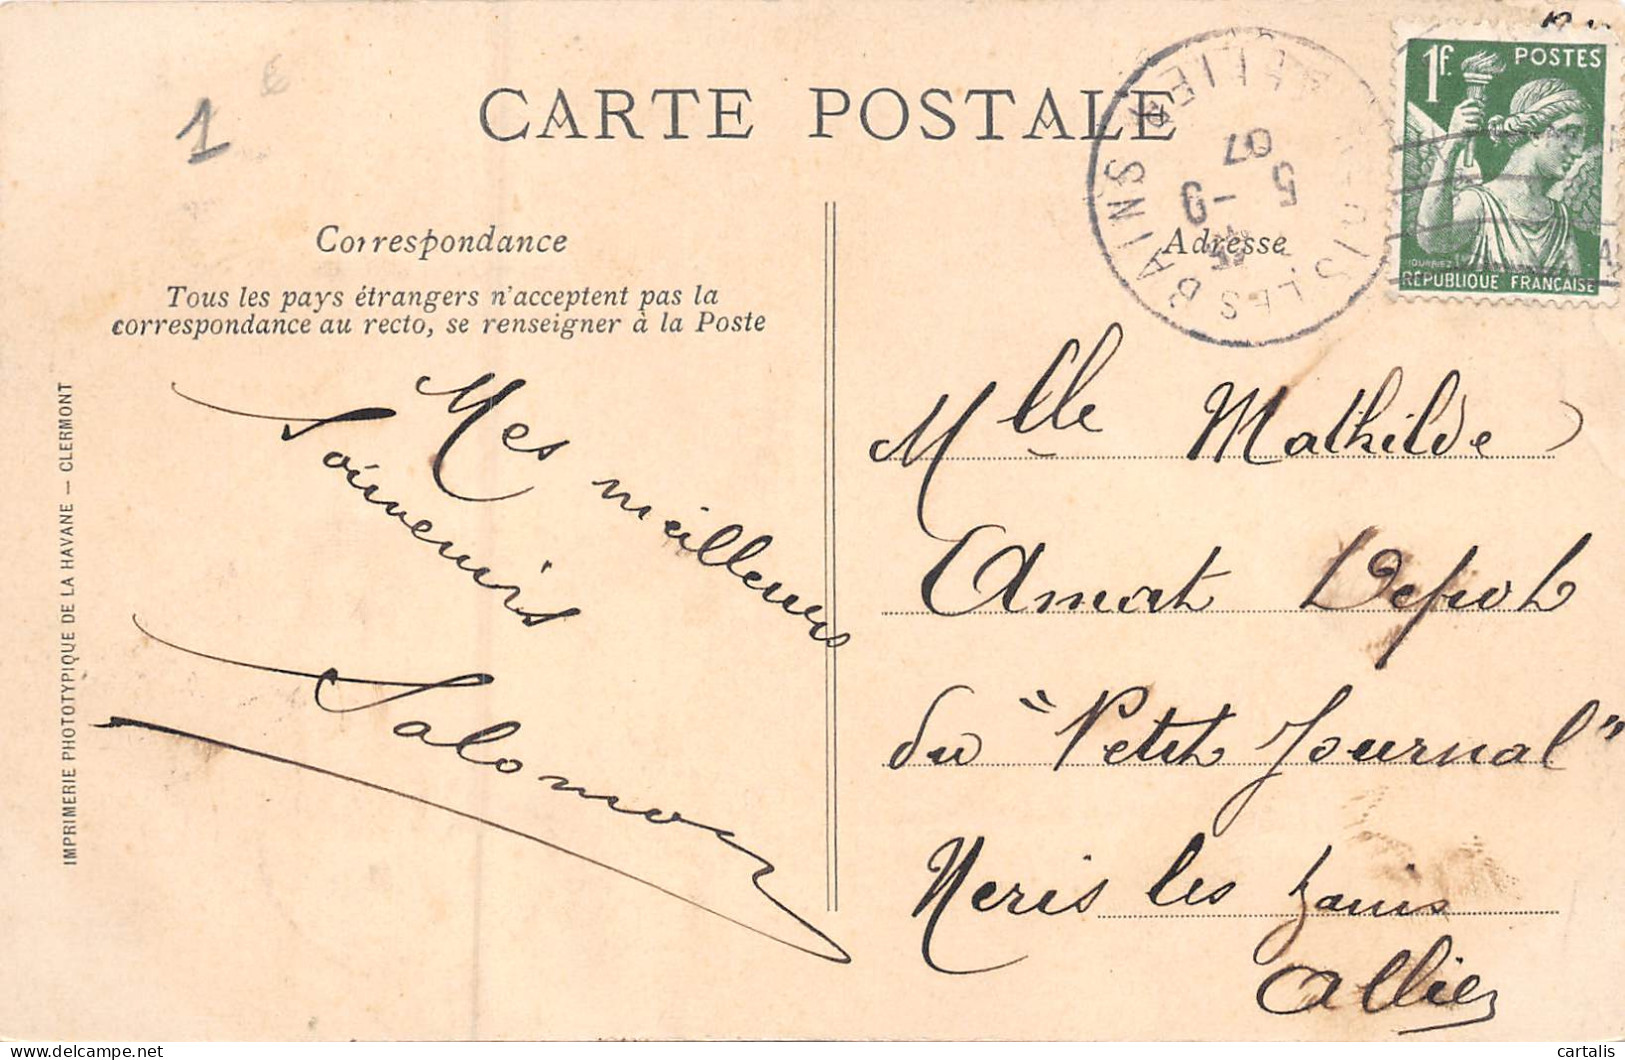 1
CARTE POSTALE
Correspondance
Tous les pays étrangers n'acceptent pas la
correspondance au recto, se renseigner à la Poste
Mes meilleurs
Souvenirs
Salomon
IMPRIMERIE PHOTOTYPIQUE DE LA HAVANE — CLERMONT
LES BAINS
5 -9
07
1f. POSTES
RÉPUBLIQUE FRANÇAISE
Adresse
Mlle Mathilde
Amat Depot
du "Petit Journal"
Neris les bains
Allier
cartalis